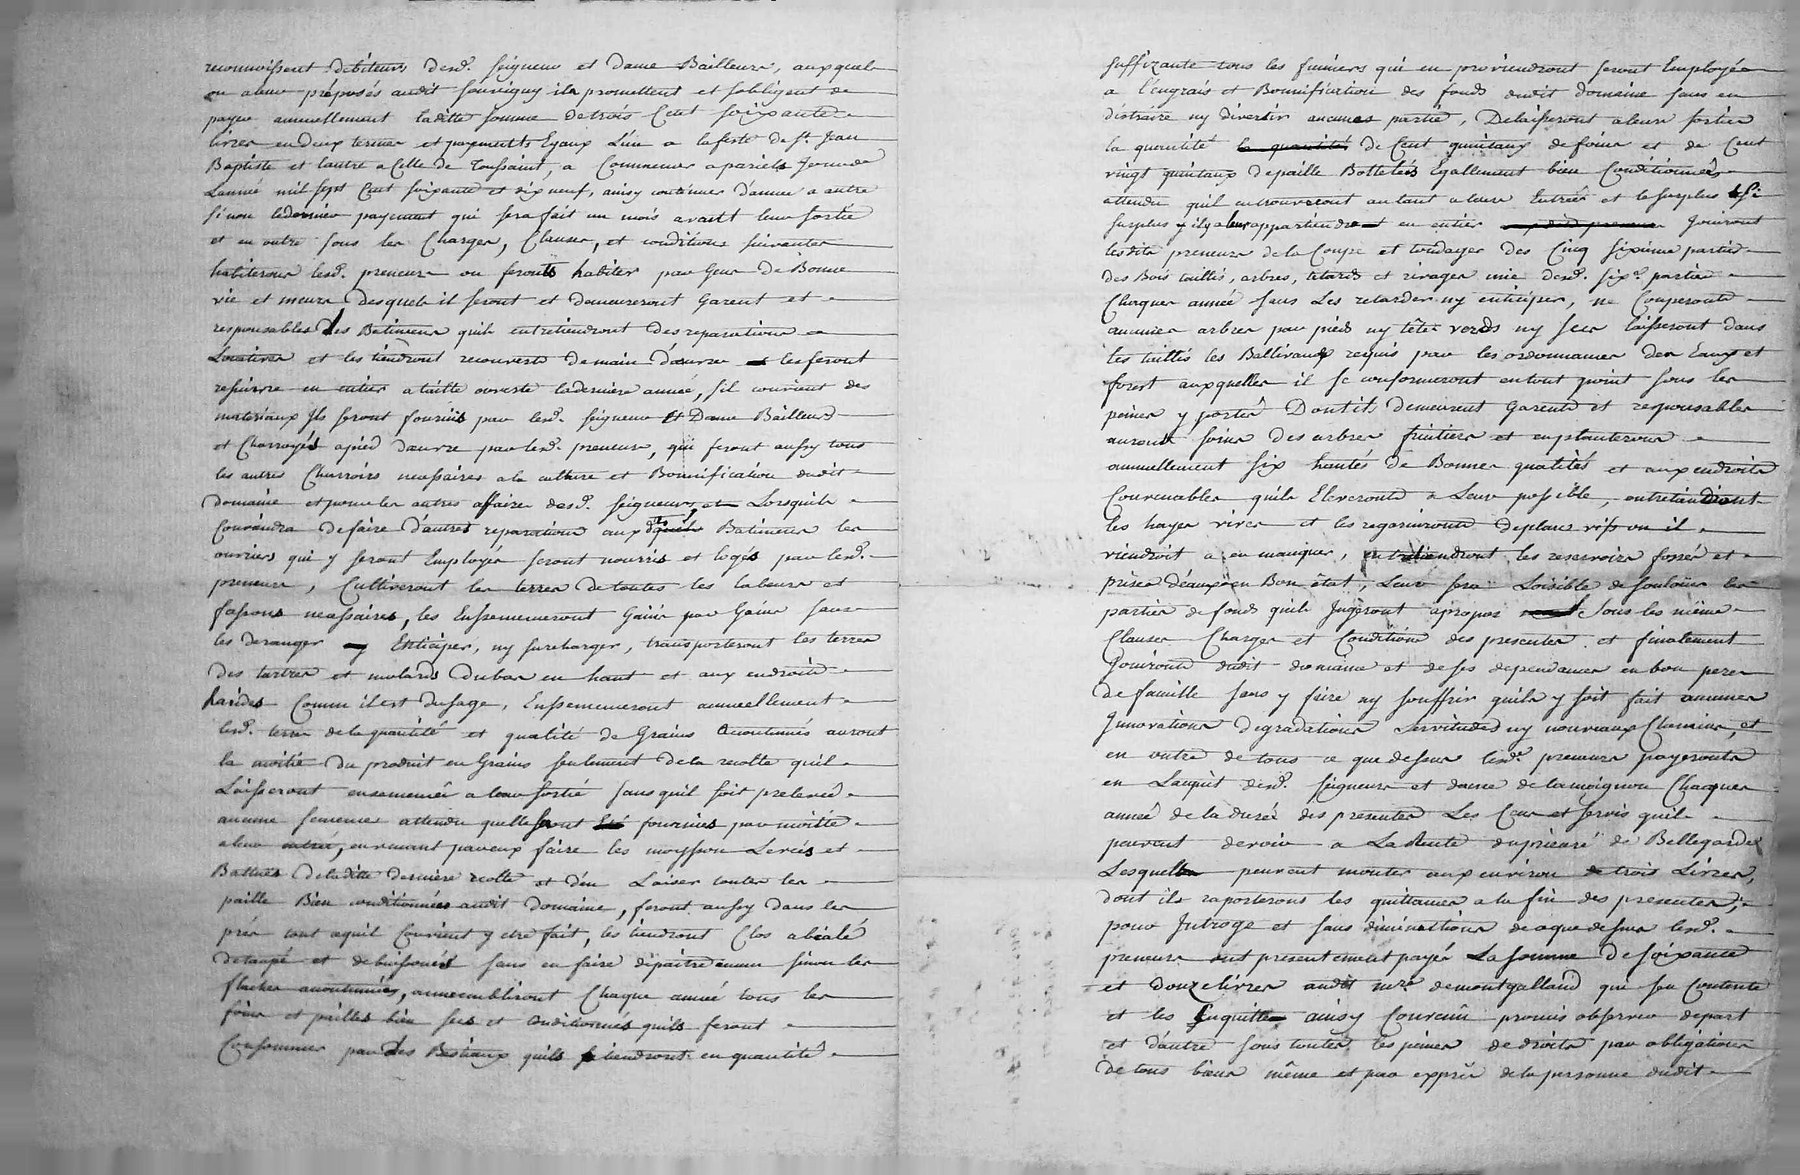 reconnoissent debiteurs desd. seigneur et Dame Bailleurs, auxquels
ou a leur préposés audit Souvigny ils promettent et sobligent de
payer annuellement laditte somme de trois Cent soixante
livres en deux termes et payements Egaux L'un a la feste de St. Jean
Baptiste et l'autre a Celle de Toussaint, a Commencer a pareils Jours de
Lannée mil sept Cent soixante et dix neuf, ainsy continuer d'année a autre
sinon le dernier payement qui sera fait un mois avant leur sortie
et en outre sous les Charges, Clauses, et conditions suivantes
habiteront lesd. preneurs ou feronts habiter par Gens de Bonne
vie et meurs desquels il seront et demeureront Garent et
responsables Des Batimens quils entretiendront des reparations
Locatives et les tiendront recouverts de main d'œuvre les feront
resuivre en entier a taitte ouverte la derniere année, sil convient des
materiaux Ils seront fournis par lesd. seigneur Et Dame Bailleurs
et Charroyés a pied d'œuvre par lesd. preneurs, qui feront aussy tous
les autres Charrois necessaires a la culture et Bonnification dudit
domaine et pour les autres affaires desd. seigneurs, et Lorsquils
Conviendra de faire d'autres reparations auxdits Batimens les
ouvriers qui y seront Employés seront nourris et logés par lesd.
preneurs, Cultiveront les terres de toutes les labeurs et
fassons necessaires, les Ensemenseront Gain par Gain sans
les deranger ny Enticiper, ny surcharger, transporteront les terres
des tertres et molards du bas en haut et aux endroits
harides Comm il est dusage, Ensemenseront annuellement
lesd. terres de la quantité et qualité de Grains accoutumés auront
la moitié du produit en Grains seulement de la recolte quil
Laisseront ensemencé a leur sortie sans quil soit prelevé
aucune semences attendu quelle seront fournies par moitié
a leur entrée, en venant par eux faire les moysson Levées et
Battues de laditte derniere recolte et d'en Laiser toutes les
paille Bien conditionnées audit Domaine, feront aussy dans les
prés tout cequil Convient y etre fait, les tiendront Clos abialé
detaupé et debuissonés sans en faire dépaitre aucun sinon les
flaches accoutumées, amcembliront Chaque année tous les
foins et pailles bien secs et conditionnés quils feront
Consommer par des Bestiaux quils tiendront en quantité
suffizante tous les fumiers qui en proviendront seront Employés
a l'engrais et Bonnification des fonds dudit domaine sans en
distraire ny divertir aucunes partie, Delaisseront a leur sortie
la quantité de Cent quintaux de foins et de Cent
vingt quintaux de paille Botteleis Egallement bien Conditionnées
attendu quil en trouveront autant a leur Entrée et le surplus si
surplus y il y a leur appartiendront en entier Jouiront
lesdits preneurs de la Coupe et tondages des Cinq sixieme partie
des Bois taillis, arbres, tetards et rivages mie desd. six.e partie
Chaques année sans Les retarder ny enticiper, ne Couperont
aucunes arbres par pieds ny têtes verds ny secs laisseront dans
les taillis les Ballivaux requis par les ordonnances des Eaux et
forest auxquelles il se conformeront en tout point sous les
peines y portés Dont ils demeurent Garents et responsables
auront soins des arbres fruitiers et en planteront
annuellement six hantés de Bonnes qualités et aux endroits
Convenables quils Eleveront a Leur possible, entretiendront
les hayes vives et les regarniront de plans vifs ou il
viendroit a en manquer, entretiendront les reservoirs fossés et
prises d'eaux en Bon état, Leur sera Loisible de soulouer les
parties de fonds quils Jugeront apropos sous les même
Clauses Charges et Conditions des presentes et finalement
Jouiront dudit domaine et de ses dependances en bon peres
de famille sans y faire ny souffrir quils y soit fait aucunes
Innovations Degradations Servitudes ny nouveaux Chemins, et
en outre de tous ce que dessus lesd. preneurs payeronts
en Laquit desd. seigneurs et dame de lamoignon Chaques
année de la durée des presentes Les Cens et servis quil
peuvent devoir a La Rente du prieuré de Bellegarde
Lesquelles peuvent monter aux environ de trois Livres,
dont ils raporterons les quittances a la fin des presentes,
pour Introge et sans diminuttions de ce que dessus lesd.
preneurs ont presentement payés La somme De soixante
et Douze livres audit me. demontgalland qui sen Contente
et les Enquitte ainsy Convenu promis observer depart
et d'autre sous toutes les peines de droits par obligations
de tous biens même et par exprès de la personne dudit